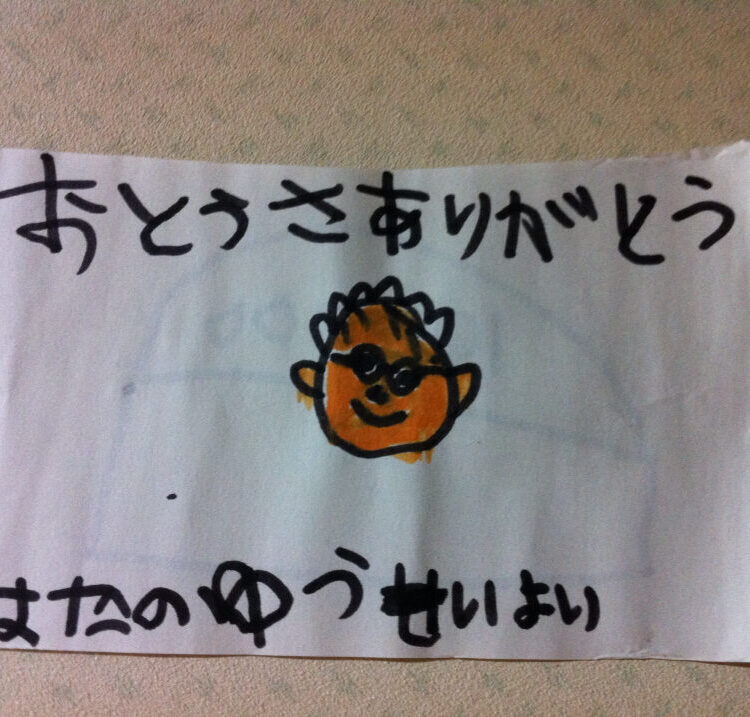 おとうさありがとう
はたのゆうせいよい